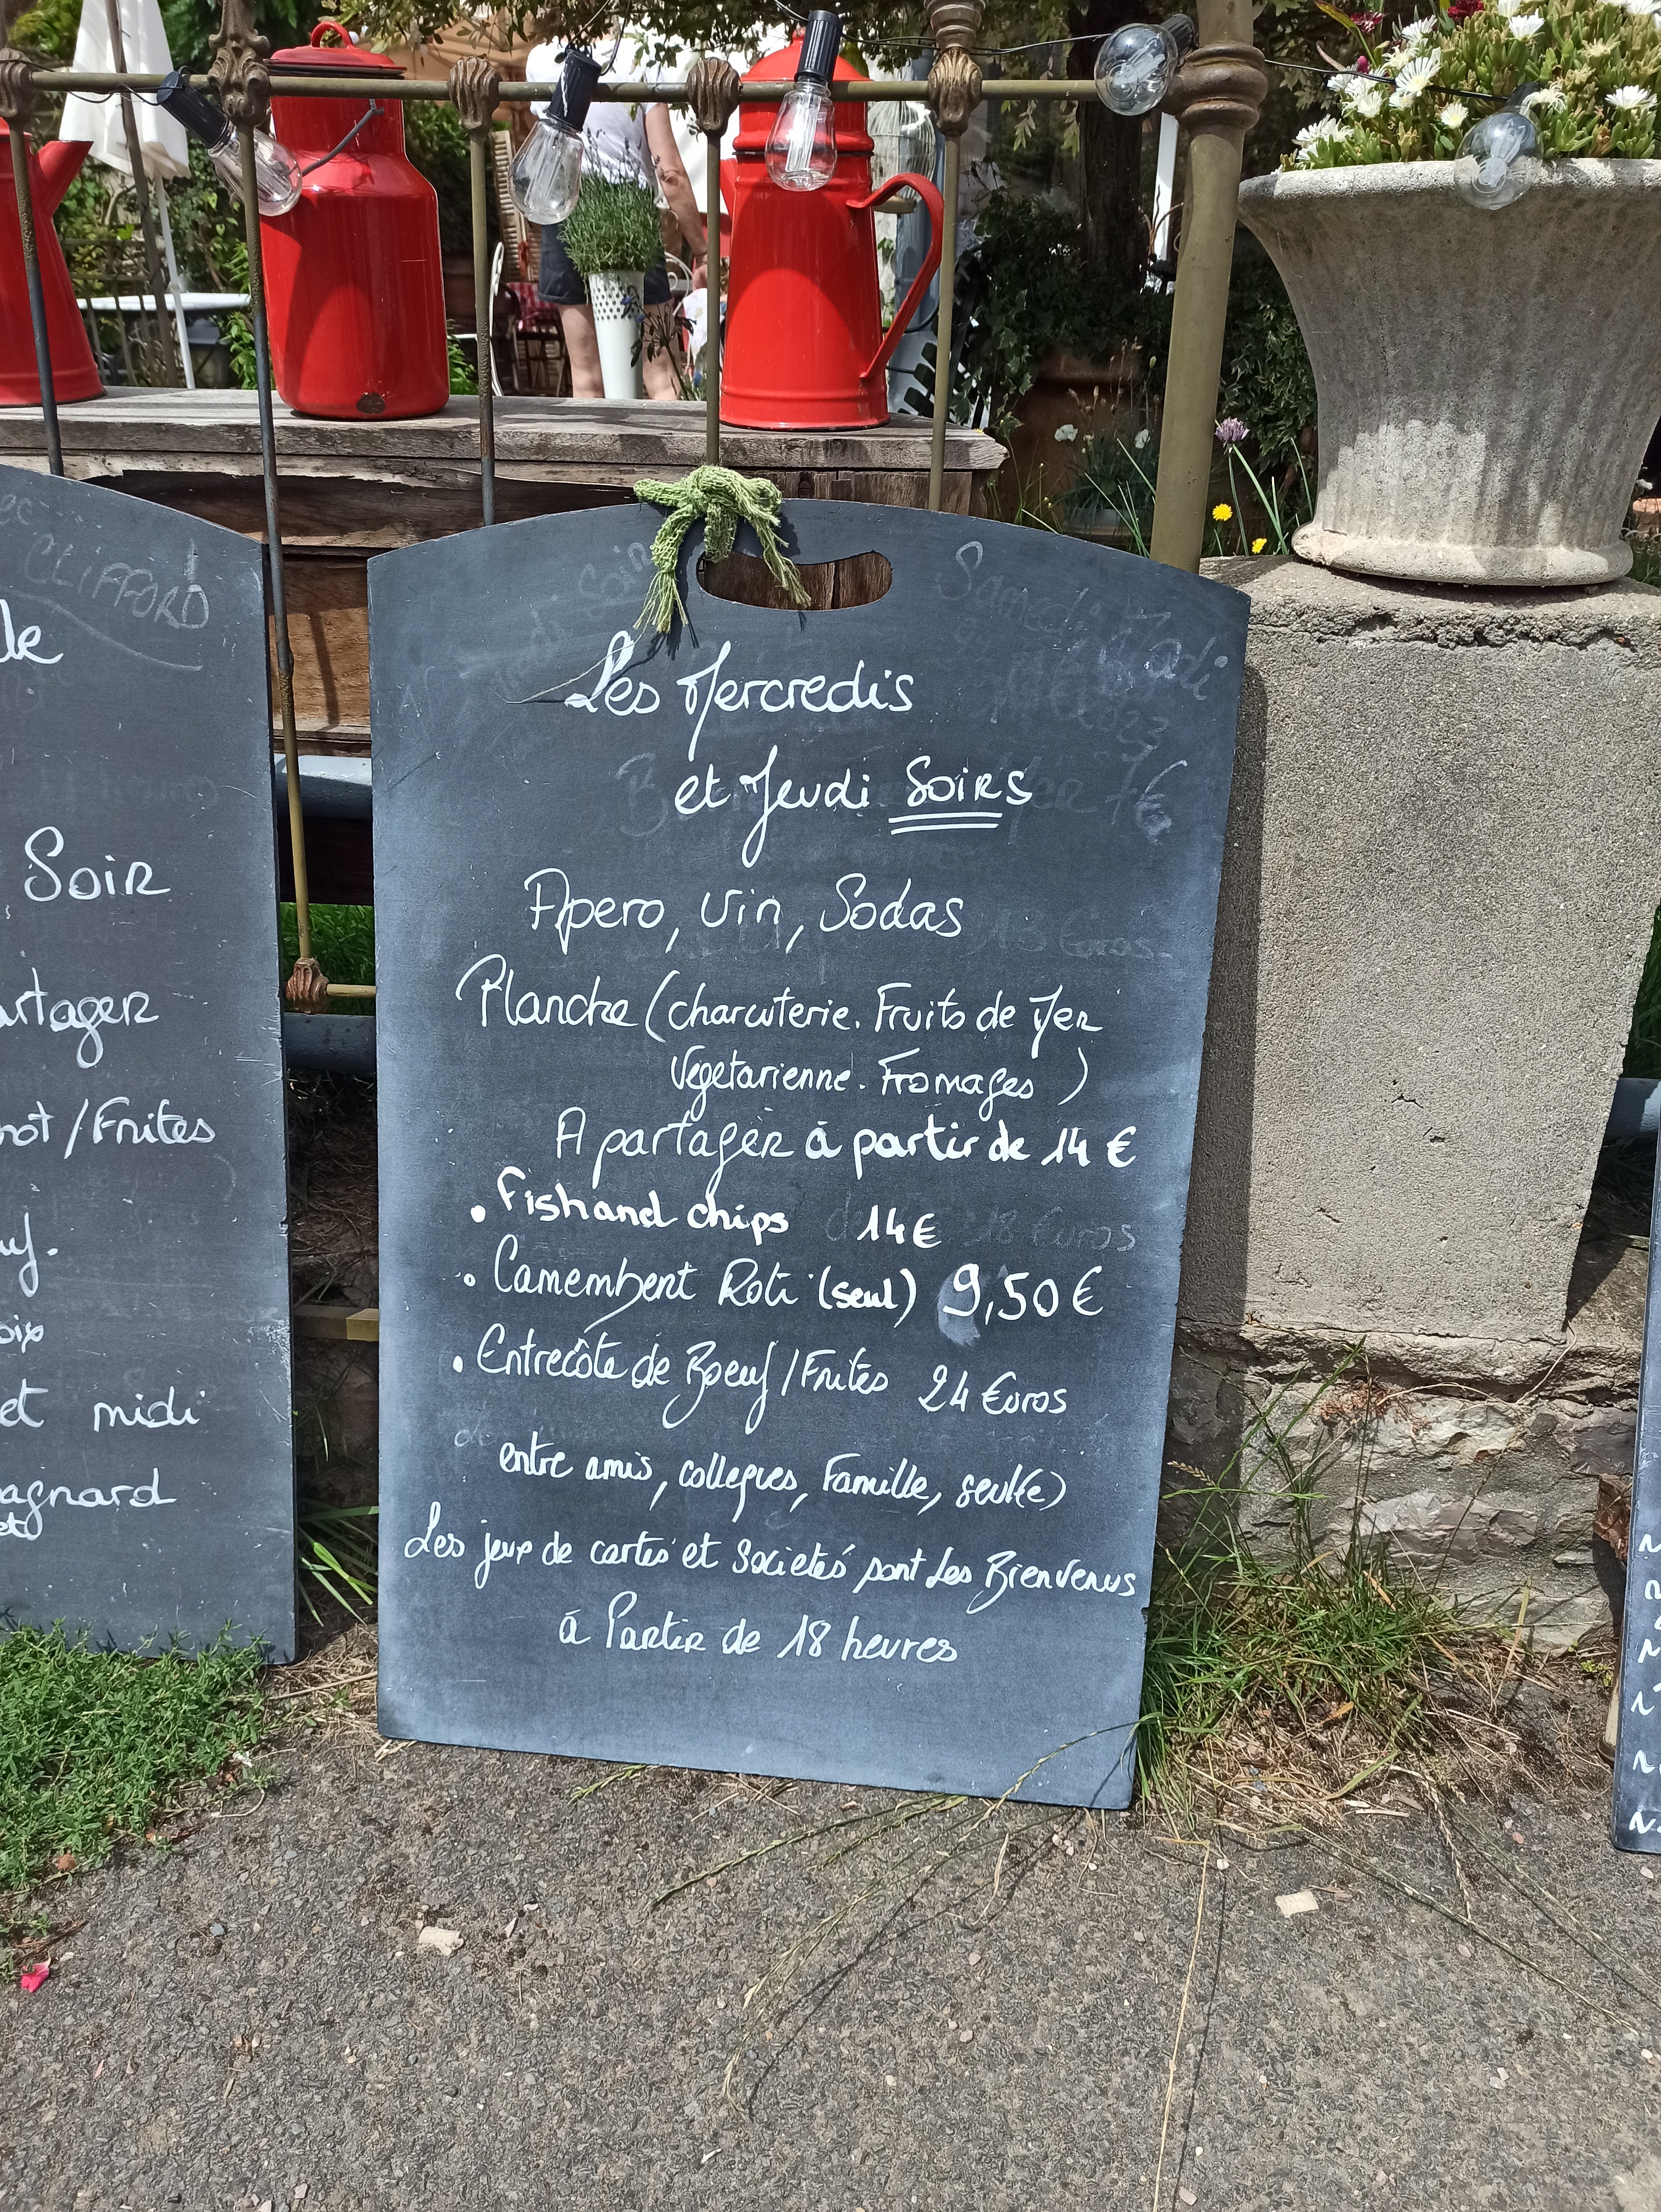 CLIFFORD
Soir
artager
not/Frites
et midi
agnard
Les Mercredis
et Jeudi SOIRS
Apero, vin, Sodas
Planche (charcuterie. Fruits de Mer
Vegetarienne. Fromages)
A partager à partir de 14 €
. Fish and chips 14€
. Camembert Roti (seul) 9,50 €
. Entrecôte de Boeuf/Frites 24 €uros
entre amis, collegues, Famille, seul(e)
Les jeux de cartes et Societés sont Les Bienvenus
à Partir de 18 heures